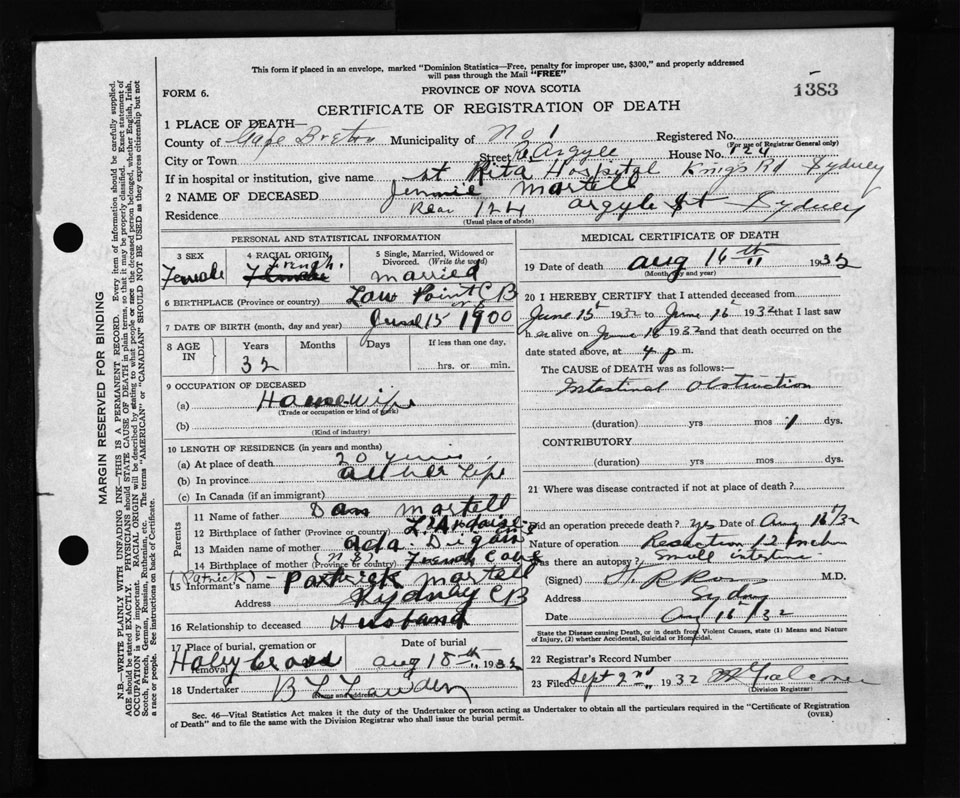 This form if placed in an envelope, marked "Dominion Statistics—Free, penalty for improper use, $300," and properly addressed
will pass through the Mail "FREE"
PROVINCE OF NOVA SCOTIA
FORM 6.
1383
CERTIFICATE OF REGISTRATION OF DEATH
1 PLACE OF DEATH—
County of Cape Breton Municipality of No 1 Registered No.
(For use of Registrar General only)
City or Town Street Argyle House No. 124
If in hospital or institution, give name St Rita Hospital Kings Rd Sydney
2 NAME OF DECEASED Jennie Martell
Residence Rear 124 Argyle St Sydney
(Usual place of abode)
PERSONAL AND STATISTICAL INFORMATION
3 SEX 4 RACIAL ORIGIN 5 Single, Married, Widowed or
Divorced. (Write the word)
Female French. Married
6 BIRTHPLACE (Province or country) Low Point C B
7 DATE OF BIRTH (month, day and year) June 15 1900
8 AGE IN Years Months Days If less than one day,
32 hrs. or min.
9 OCCUPATION OF DECEASED
(a) House-wife
(Trade or occupation or kind of work)
(b)
(Kind of industry)
10 LENGTH OF RESIDENCE (in years and months)
(a) At place of death 20 years
(b) In province all her life
(c) In Canada (if an immigrant)
Parents
11 Name of father Dan Martell
12 Birthplace of father (Province or country) L'Ardoise
13 Maiden name of mother Ada
14 Birthplace of mother (Province or country) French Cove
(Patrick)
15 Informant's name Patrick Martell
Address Sydney C B
16 Relationship to deceased Husband
17 Place of burial, cremation or
removal Date of burial
Holy Cross Aug 18th 1932
18 Undertaker
(Name and address)
MEDICAL CERTIFICATE OF DEATH
19 Date of death Aug 16th 1932
(Month, day and year)
20 I HEREBY CERTIFY that I attended deceased from
June 15 1932 to June 16 1932 that I last saw
h er alive on June 16 1932 and that death occurred on the
date stated above, at 4 p m.
The CAUSE of DEATH was as follows:—
Intestinal Obstruction
(duration) yrs mos 1 dys.
CONTRIBUTORY
(duration) yrs mos dys.
21 Where was disease contracted if not at place of death?
Did an operation precede death? Yes Date of Aug 16/32
Nature of operation Resection 12 inches
Was there an autopsy? small intestine
(Signed) M.D.
Address Sydney
Date Aug 16/32
State the Disease causing Death, or in death from Violent Causes, state (1) Means and Nature
of Injury, (2) whether Accidental, Suicidal or Homicidal.
22 Registrar's Record Number
23 Filed Sept 2nd 1932
(Division Registrar)
Sec. 46—Vital Statistics Act makes it the duty of the Undertaker or person acting as Undertaker to obtain all the particulars required in the "Certificate of Registration
of Death" and to file the same with the Division Registrar who shall issue the burial permit. (OVER)
MARGIN RESERVED FOR BINDING
N.B.—WRITE PLAINLY WITH UNFADING INK—THIS IS A PERMANENT RECORD. Every item of information should be carefully supplied.
AGE should be stated EXACTLY. PHYSICIANS should STATE CAUSE OF DEATH in plain terms, so that it may be properly classified. Exact statement of
OCCUPATION is very important. RACIAL ORIGIN will be described by stating to what people or race the deceased person belonged, whether English, Irish,
Scotch, French, German, Russian, Ruthenian, etc. The terms "AMERICAN" or "CANADIAN" SHOULD NOT BE USED as they express citizenship but not
a race or people. See instructions on back of Certificate.